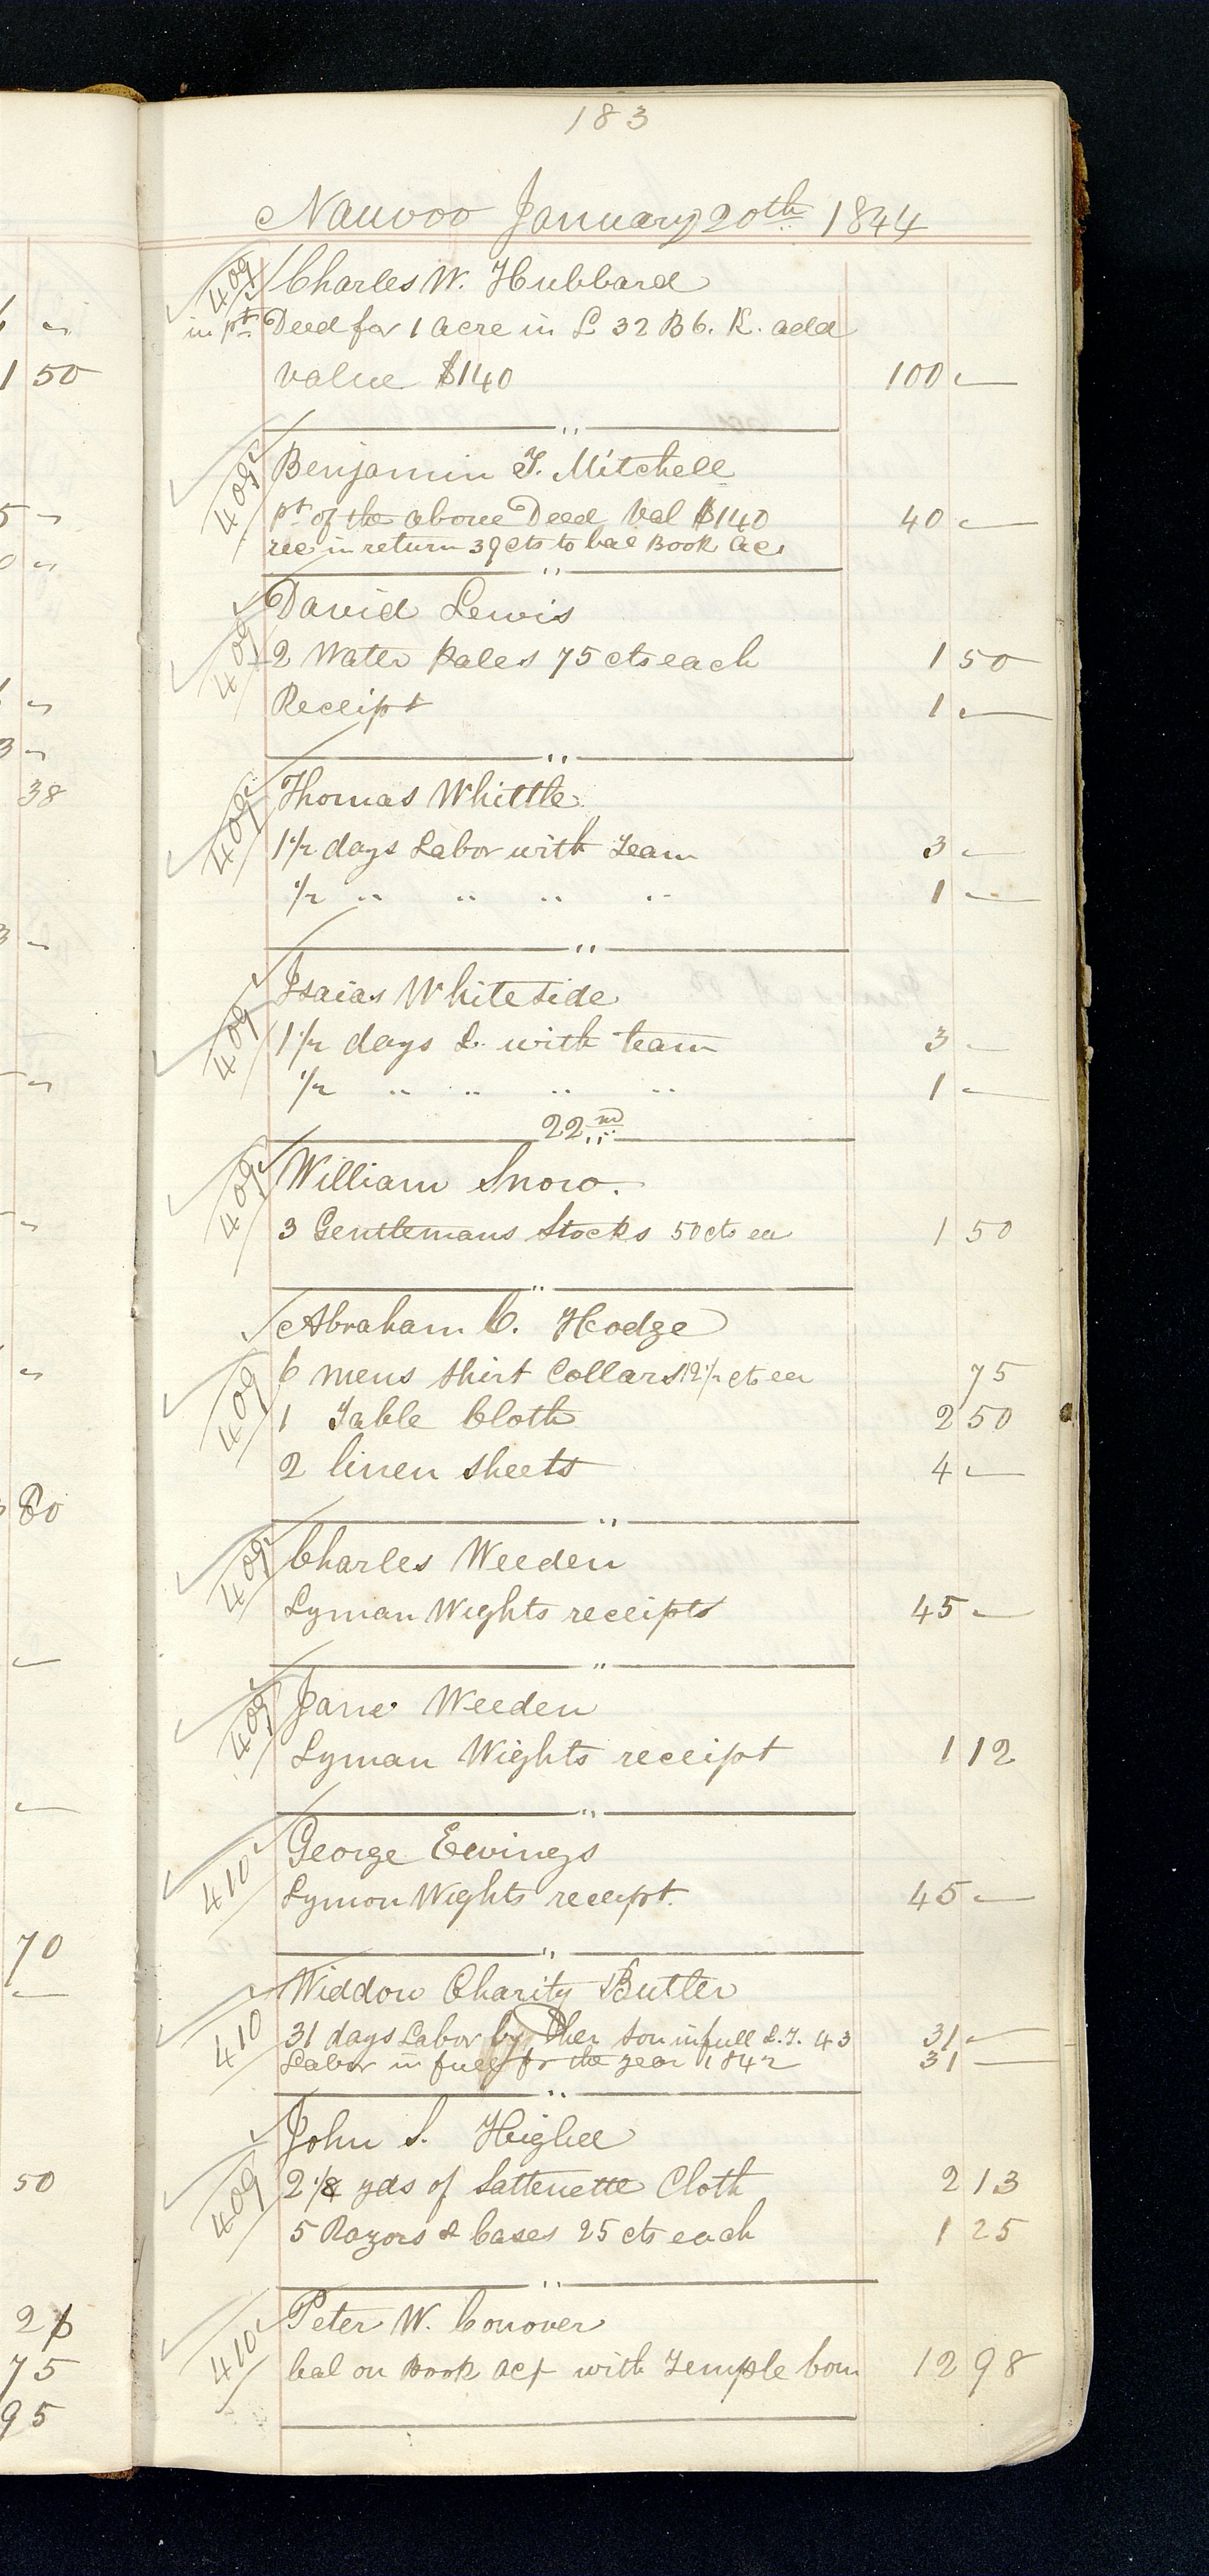 183
Nauvoo January 20th 1844
409 Charles W. Hubbard
in pt Deed for 1 acre in L 32 B 6. K. add
value $140 100 —
"
409 Benjamin T. Mitchell
pt of the above Deed Val $140 40 —
rec in return 39 cts to bal Book Ac.
"
409 David Lewis
2 Water Pales 75 cts each 1 50
Receipt 1 —
"
409 Thomas Whittle
1 1/2 days Labor with Team 3 —
1/2 " " " " 1 —
"
409 Isaias Whiteside
1 1/2 days L. with team 3 —
1/2 " " " " 1 —
22nd
409 William Snow.
3 Gentlemans Stocks 50 cts ea 1 50
"
Abraham C. Hodge
409 6 mens shirt Collars 12 1/2 cts ea 75
1 Table Cloth 2 50
2 linen sheets 4 —
"
409 Charles Weeden
Lyman Wights receipts 45 —
"
409 Jane Weeden
Lyman Wights receipt 1 12
"
410 George Ewings
Lymon Wights receipt. 45 —
"
410 Widdow Charity Butler
31 days Labor by her son in full L.T. 43 31 —
Labor in full for the year 1842 31 —
"
John S. Higbee
409 2 1/8 yds of Sattenette Cloth 2 13
5 Razors & Cases 25 cts each 1 25
"
410 Peter W. Conover
bal on Book act with Temple Com 12 98
1 50
38
80
70
50
75
95